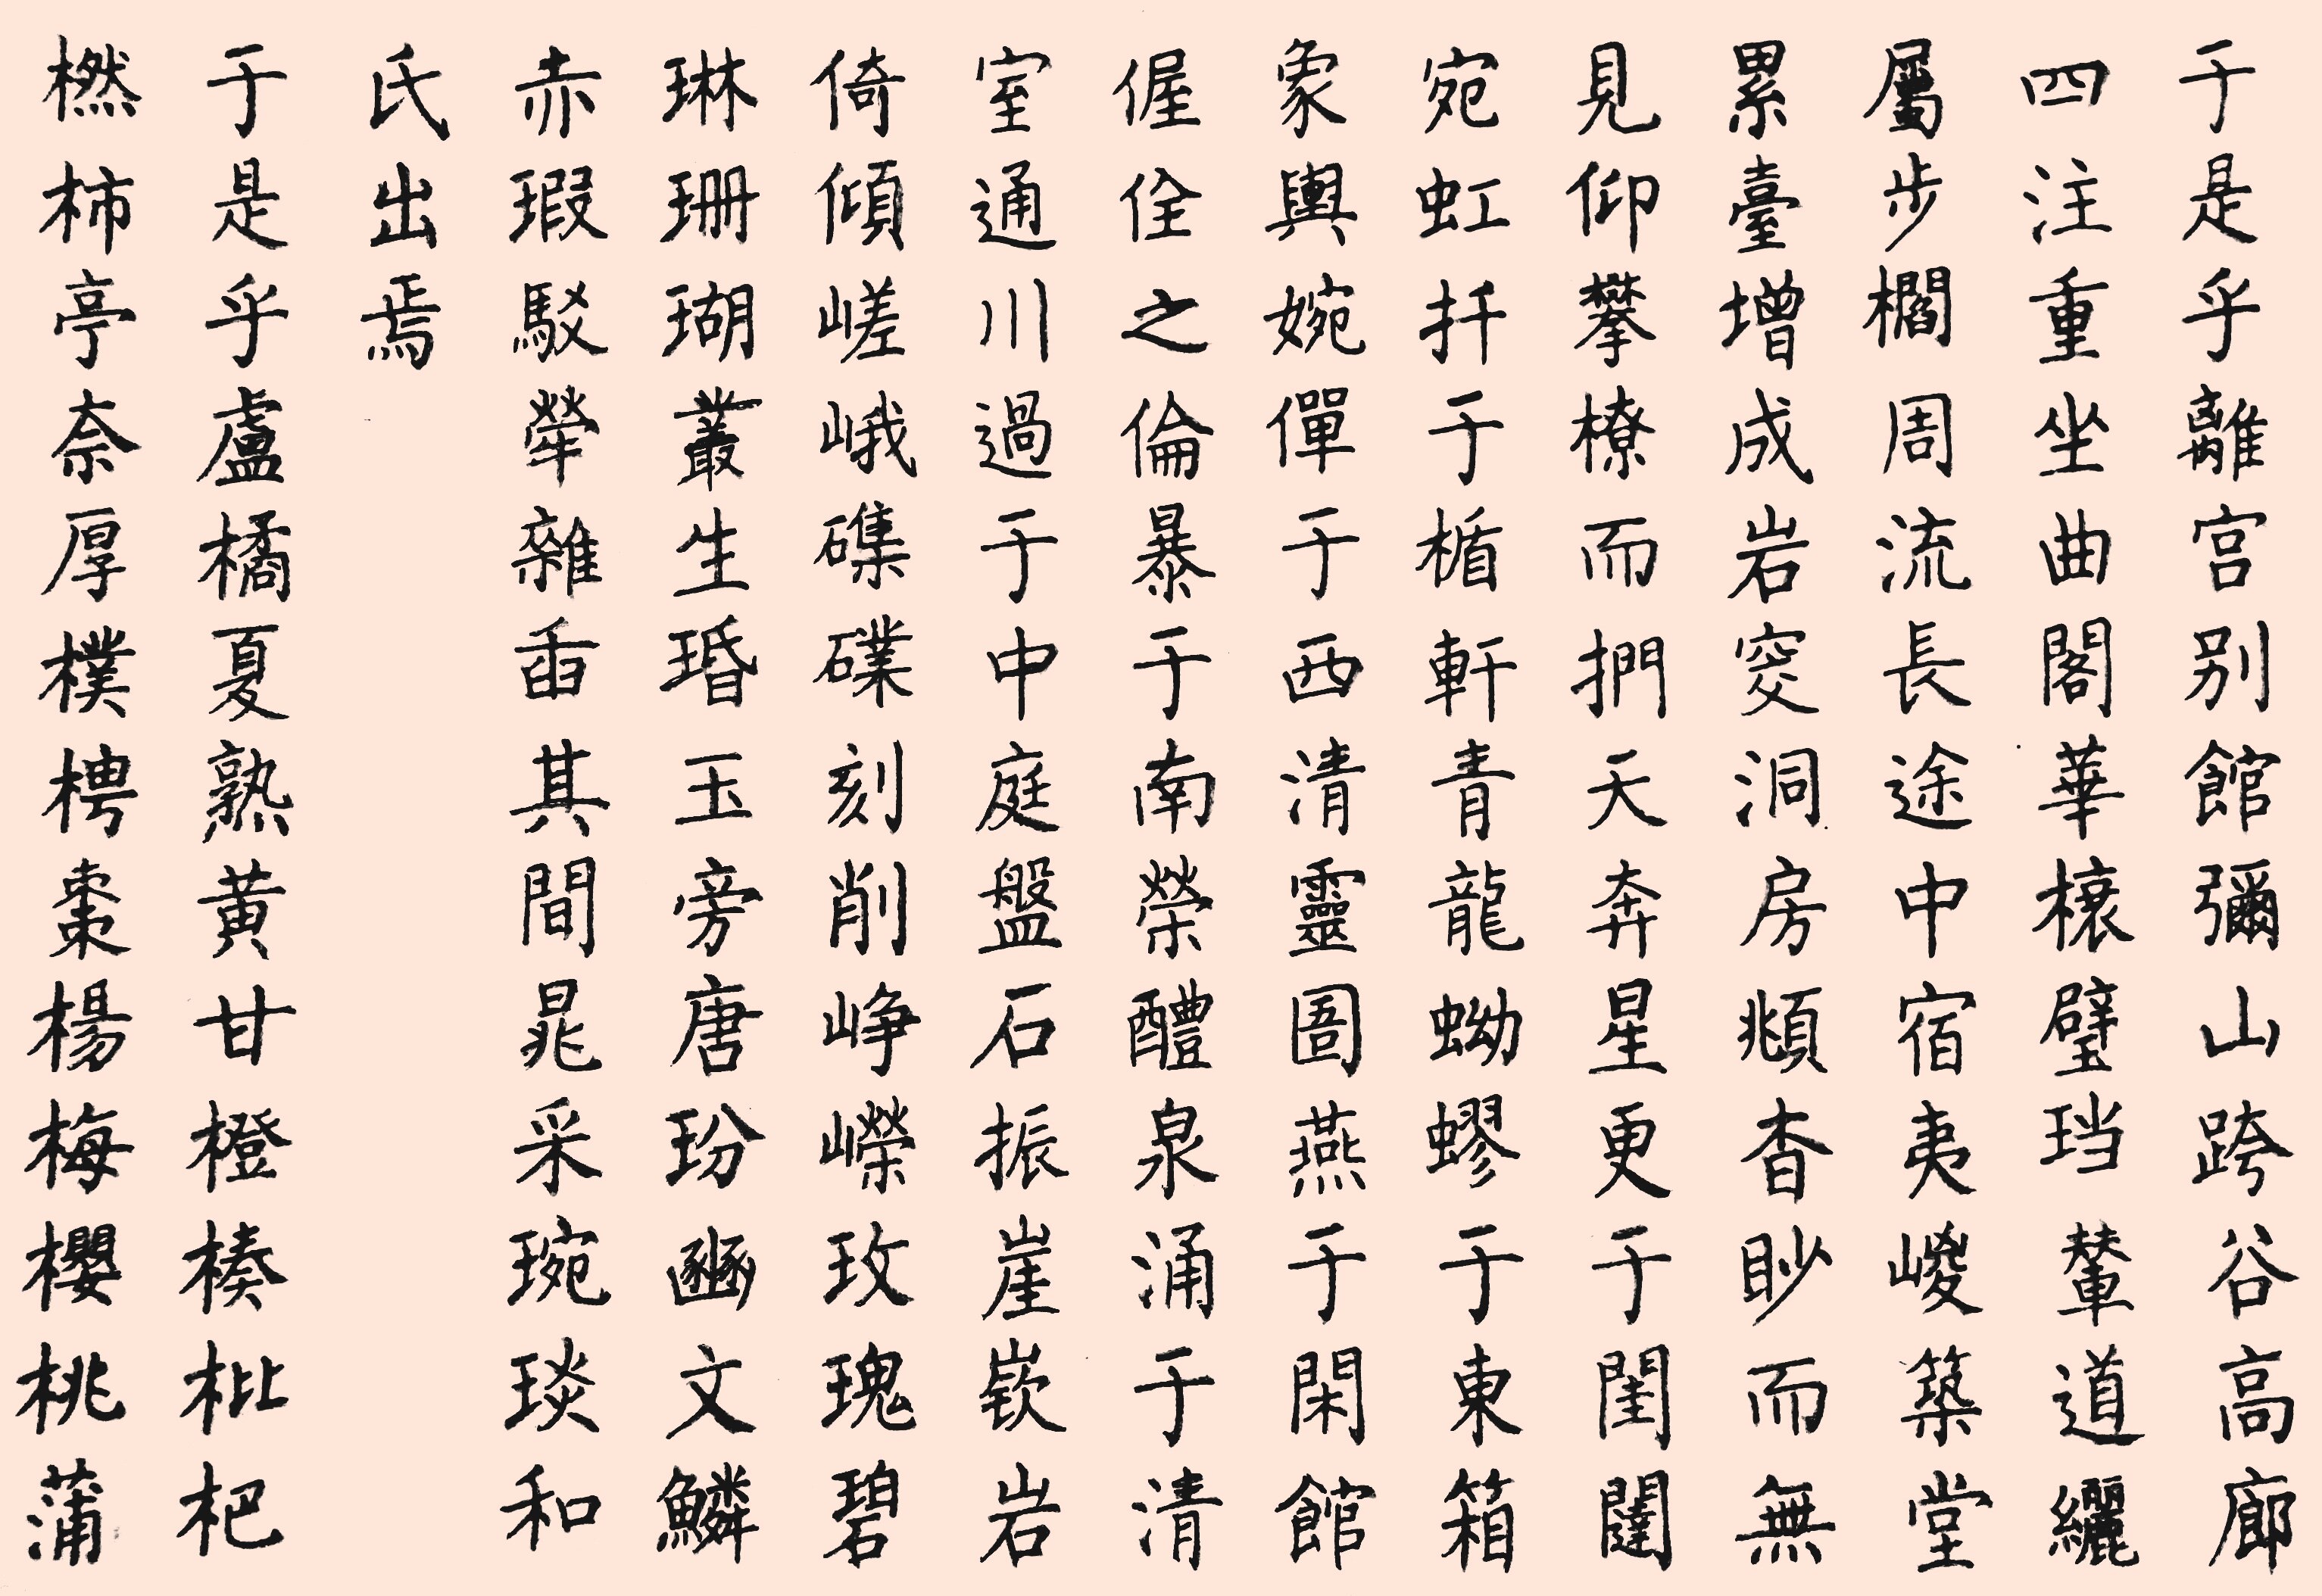 于是乎離宮别館彌山跨谷高廊
四注重坐曲閣華榱璧璫輦道纚
屬步櫩周流長途中宿夷嵏築堂
累臺增成岩窔洞房頫杳眇而無
見仰攀橑而捫天奔星更于閨闥
宛虹扦于楯軒青龍蚴蟉于東箱
象輿婉僤于西清靈圄燕于閑館
偓佺之倫暴于南榮醴泉涌于清
室通川過于中庭盤石振崖嶔岩
倚傾嵯峨磼礏刻削崢嶸玫瑰碧
琳珊瑚叢生琘玉旁唐玢豳文鱗
赤瑕駁犖雜臿其間晁采琬琰和
氏出焉
于是乎盧橘夏熟黃甘橙楱枇杷
橪柿亭奈厚樸梬棗楊梅櫻桃蒲